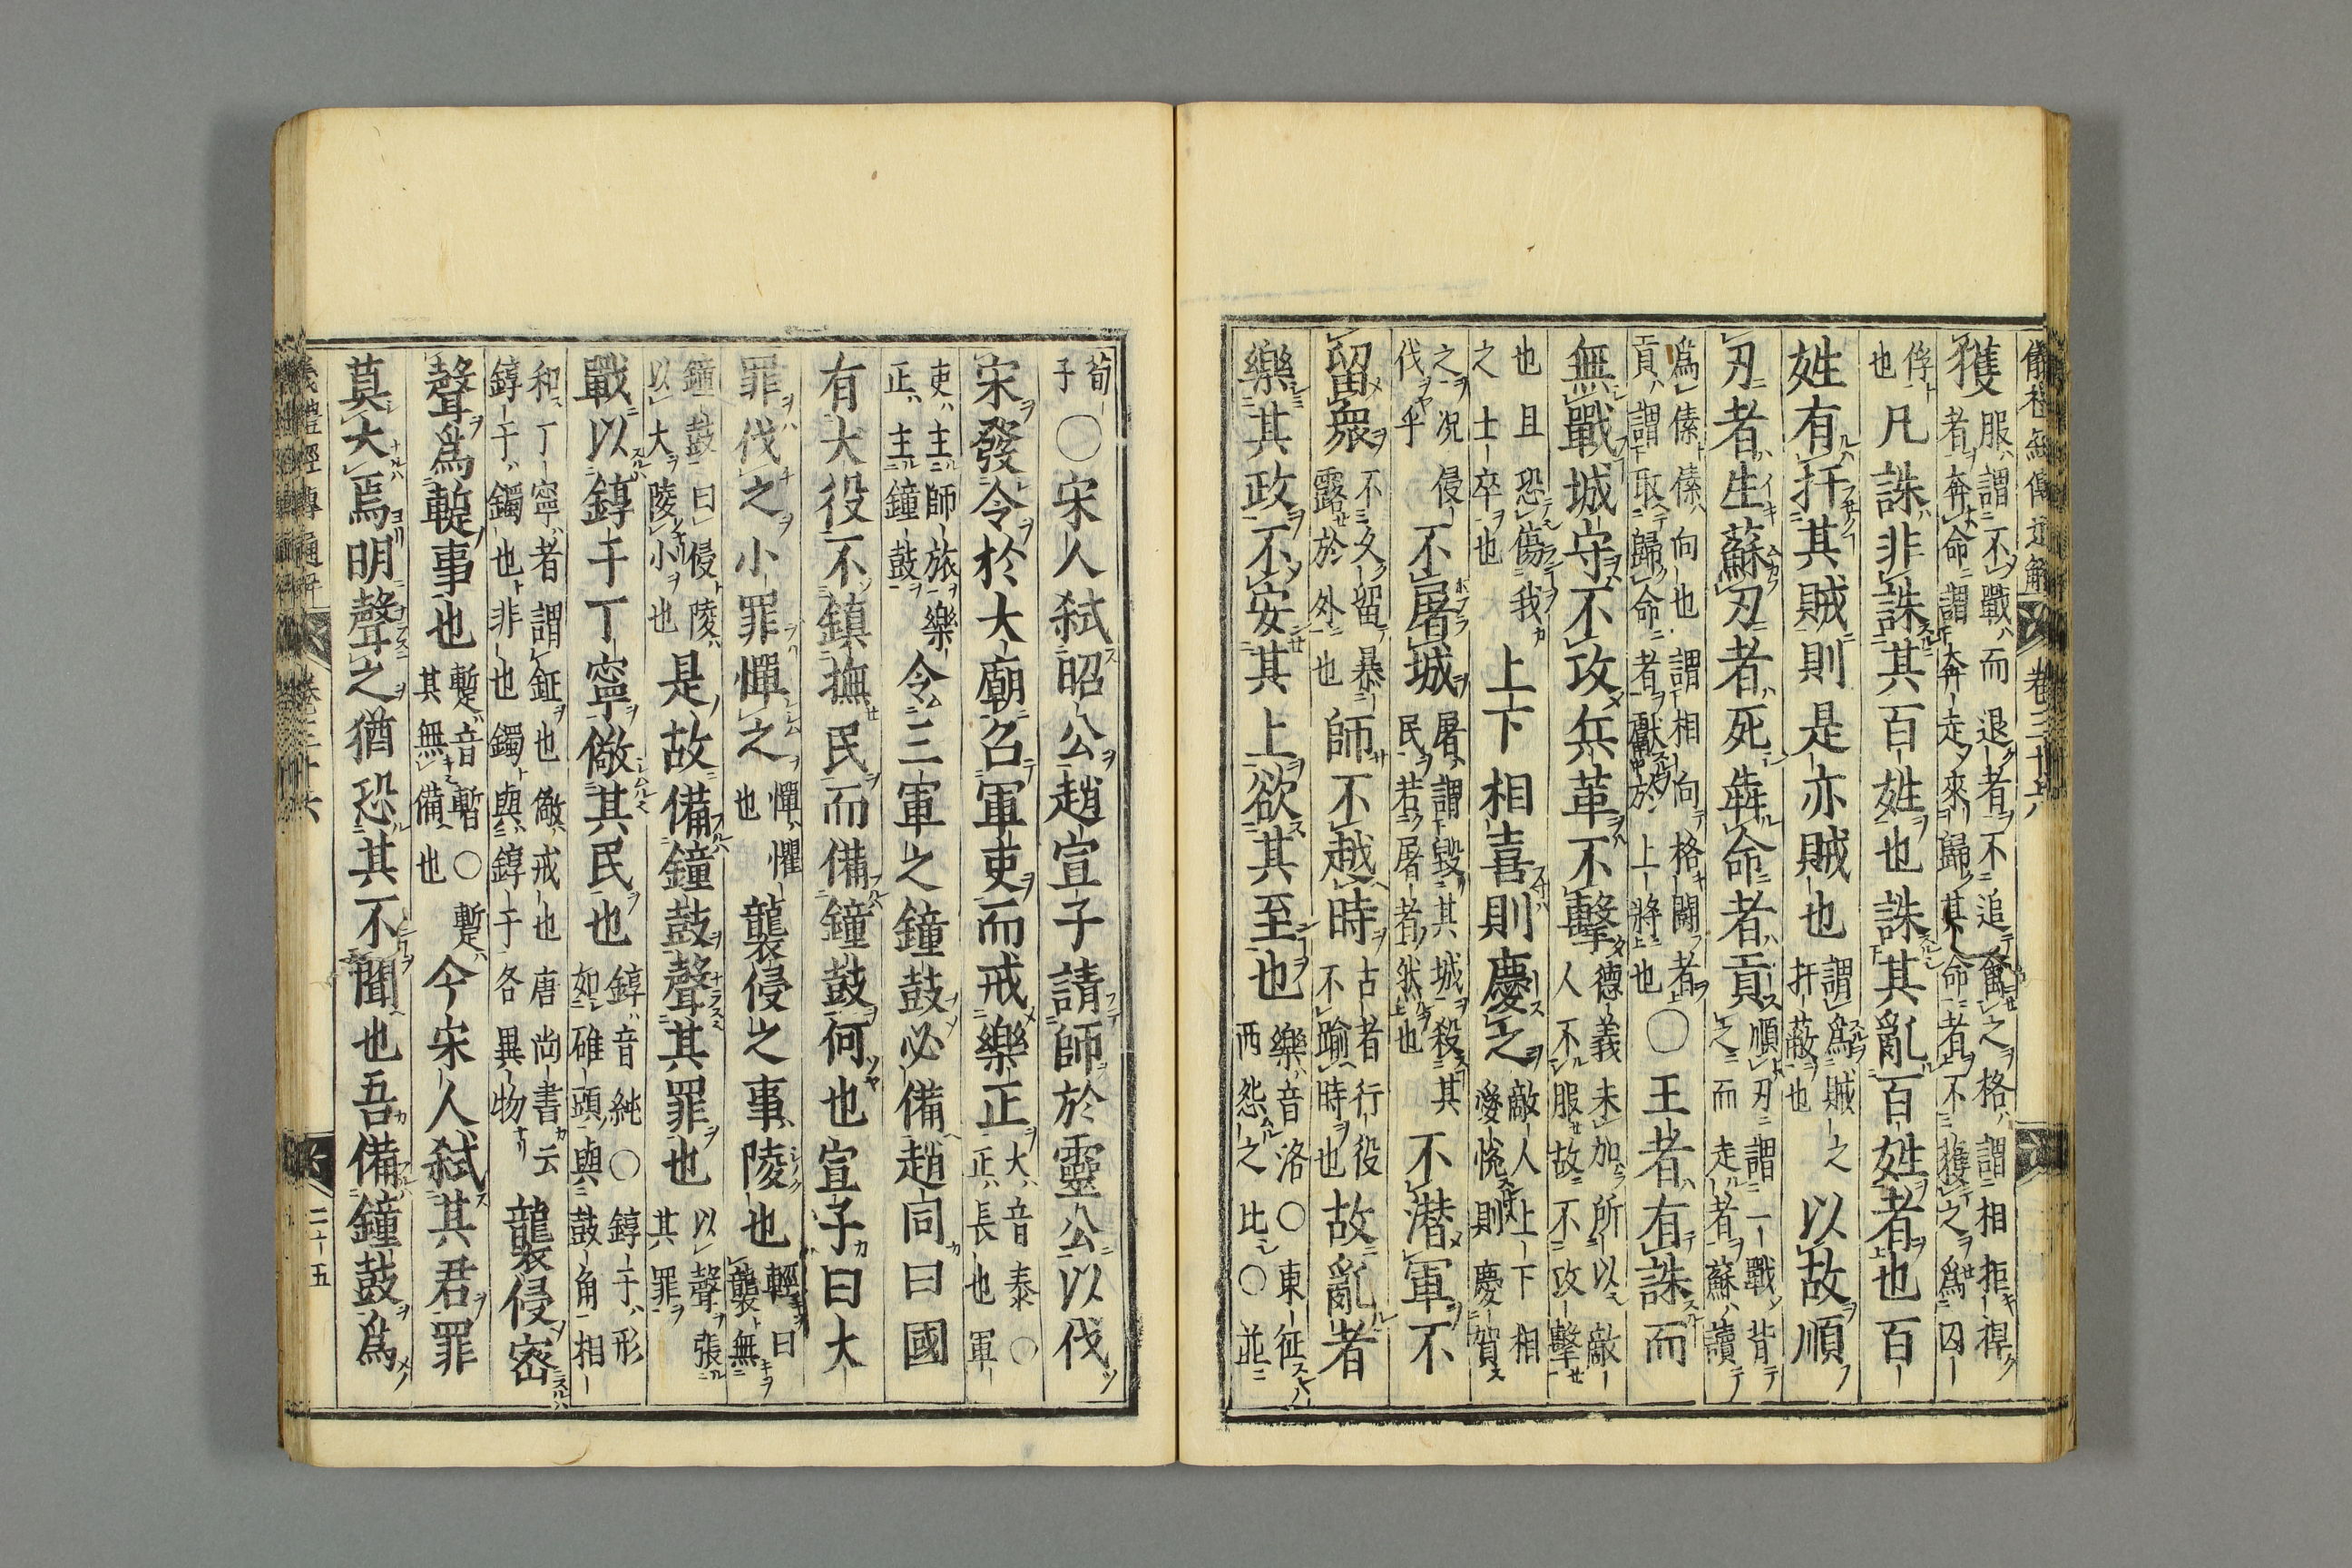 儀禮經傳通解 卷三十六
獲服謂不戰而退者不追禽之格謂相拒捍者奔命謂奔走來歸其命者不獲之爲囚
俘也凡誅非誅其百姓也誅其亂百姓者也百
姓有扞其賊則是亦賊也謂爲賊之扞蔽也以故順
刃者生蘇刃者死犇命者貢順刃謂不戰背之而走者蘇讀
爲傃傃向也謂相向格鬪者貢謂取歸命者獻於上將也○王者有誅而
無戰城守不攻兵革不擊德義未加所以敵人不服故不攻擊
也且恐傷我之士卒也上下相喜則慶之敵人上下相愛悅則慶賀
之况侵伐乎不屠城屠謂毀其城殺其民若屠者然也不潜軍不
留衆不久留暴露於外也師不越時古者行役不踰時也故亂者
樂其政不安其上欲其至也樂音洛○東征西怨之比○並
荀子○宋人弑昭公趙宣子請師於靈公以伐
宋發令於大廟召軍吏而戒樂正大音泰○正長也軍
吏主師旅樂正主鐘鼓令三軍之鐘鼓必備趙同曰國
有大役不鎮撫民而備鐘鼓何也宣子曰大
罪伐之小罪憚之憚懼也襲侵之事陵也輕曰襲無
鐘鼓曰侵陵以大陵小也是故備鐘鼓聲其罪也以聲張其罪
戰以錞于丁寧儆其民也錞音純○錞于形如碓頭與鼓角相
和丁寧者謂鉦也儆戒也唐尚書云錞于鐲也非也鐲與錞于各異物襲侵密
聲爲蹔事也蹔音暫○蹔其無備也今宋人弑其君罪
莫大焉明聲之猶恐其不聞也吾備鐘鼓爲
儀禮經傳通解 卷三十六 二十五